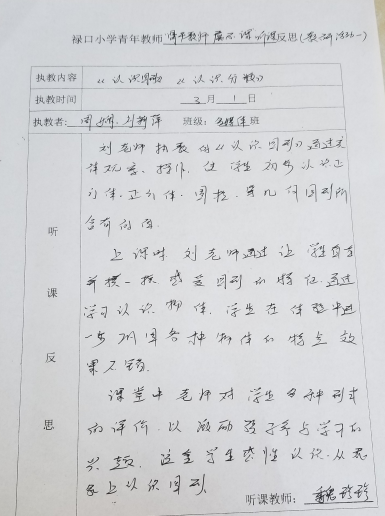 禄口小学青年教师 骨干教师 展示课 听课反思(教研活动一)
执教内容 《认识图形》 《认识分数》
执教时间 3月1日
执教者: 周 刘 萍 班级: 多媒体班
听课反思
刘老师执教的《认识图形》通过先
让观察、操作,使学生初步认识正
方体、正方体、圆柱、等几何图形所
含有的面。
上课时,刘老师通过让学生看
并摸一摸感受图形的特征,通过
学习认识物体,学生在体验中进
一步巩固各种物体的特点效
果不错。
课堂中老师对学生多种形式
的评价,以激励孩子参与学习的
兴趣,这是学生感性认识,从
上认识图形。
听课教师: 魏珍珍